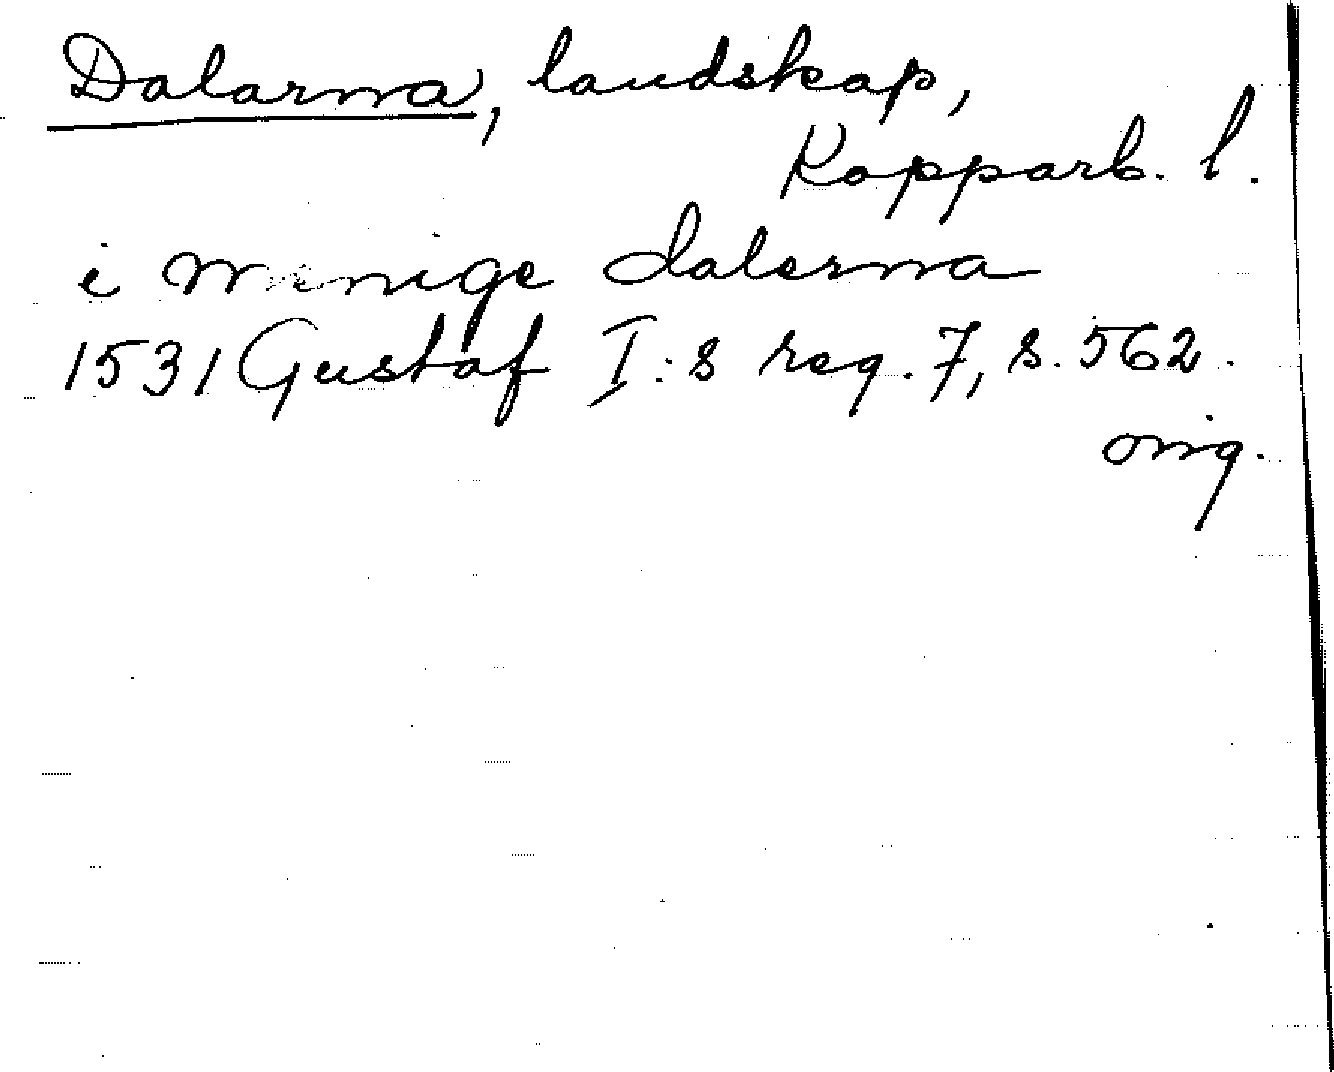 Dalarna, landskap,
Kopparb. l.
i menige dalerna
1531 Gustaf I:s reg. 7, s. 562.
orig.